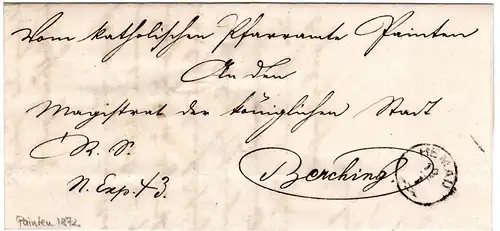 Vom katholischen Pfarramte Painten
An den
Magistrat der königlichen Stadt
R. S.
Berching.
N. Exp. 43.
HEMAU
Painten 1872